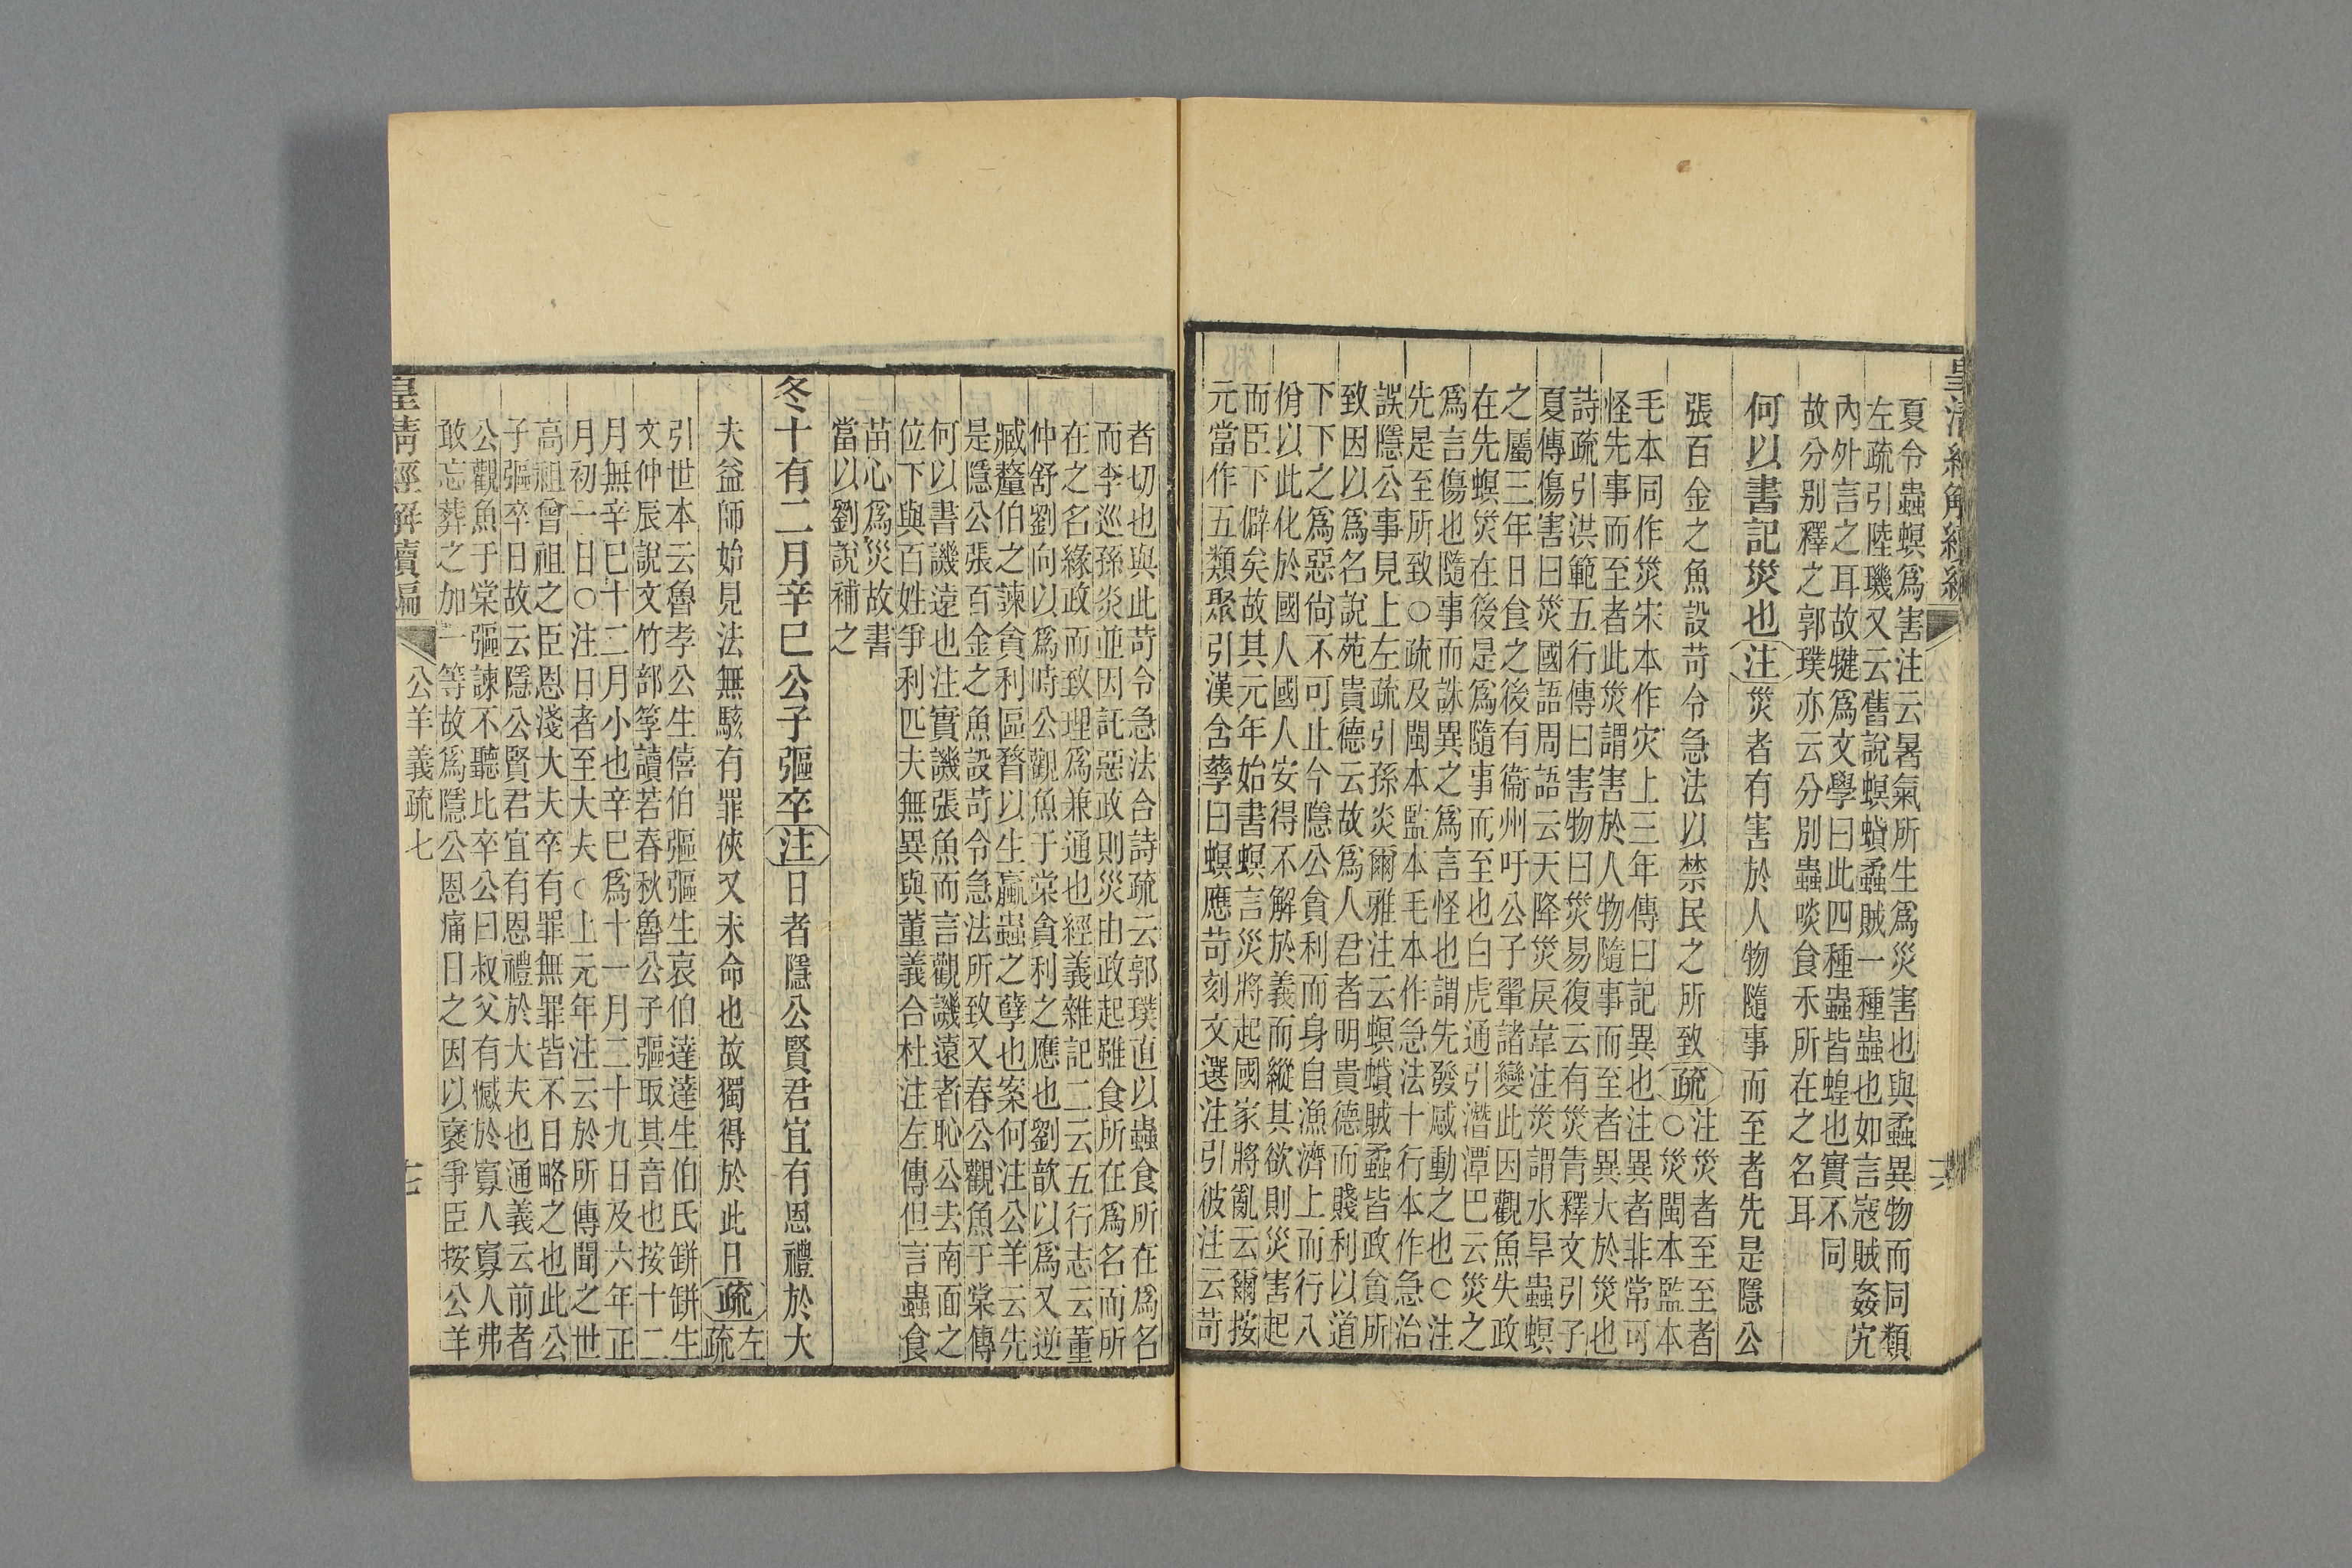 皇清經解續編
夏令蟲螟爲害注云暑氣所生爲災害也與蟊異物而同類
左疏引陸璣又云舊說螟螣蟊賊一種蟲也如言寇賊姦宄
內外言之耳故犍爲文學曰此四種蟲皆蝗也實不同
故分別釋之郭璞亦云分別蟲啖食禾所在之名耳
何以書記災也注災者有害於人物隨事而至者先是隱公
張百金之魚設苛令急法以禁民之所致疏注災者至至者
○災閩本監本
毛本同作災宋本作灾上三年傳曰記異也注異者非常可
怪先事而至者此災謂害於人物隨事而至者異大於災也
詩疏引洪範五行傳曰害物曰災易復云有災眚釋文引子
夏傳傷害曰災國語周語云天降災戾韋注災謂水旱蟲螟
之屬三年日食之後有衞州吁公子翬諸變此因觀魚失政
在先螟災在後是爲隨事而至也白虎通引潛潭巴云災之
爲言傷也隨事而誅異之爲言怪也謂先發感動之也○注
先是至所致○疏及閩本監本毛本作急法十行本作急治
誤隱公事見上左疏引孫炎爾雅注云螟蟥賊蟊皆政貪所
致因以爲名說苑貴德云故爲人君者明貴德而賤利以道
下下之爲惡尙不可止今隱公貪利而身自漁濟上而行八
佾以此化於國人國人安得不解於義而縱其欲則災害起
而臣下僻矣故其元年始書螟言災將起國家將亂云爾按
元當作五類聚引漢含孳曰螟應苛刻文選注引彼注云苛
者切也與此苛令急法合詩疏云郭璞直以蟲食所在爲名
而李巡孫炎並因託惡政則災由政起雖食所在爲名而所
在之名緣政而致理爲兼通也經義雜記二云五行志云董
仲舒劉向以爲時公觀魚于棠貪利之應也劉歆以爲又逆
臧釐伯之諫貪利區霿以生蠃蟲之孽也案何注公羊云先
是隱公張百金之魚設苛令急法所致又春公觀魚于棠傳
何以書譏遠也注實譏張魚而言觀譏遠者恥公去南面之
位下與百姓爭利匹夫無異與董義合杜注左傳但言蟲食
苗心爲災故書
當以劉說補之
冬十有二月辛巳公子彄卒注日者隱公賢君宜有恩禮於大
夫益師始見法無駭有罪俠又未命也故獨得於此日疏左
疏
引世本云魯孝公生僖伯彄彄生哀伯達達生伯氏缾缾生
文仲辰說文竹部䇠讀若春秋魯公子彄取其音也按十二
月無辛巳十二月小也辛巳爲十一月二十九日及六年正
月初一日○注日者至大夫○上元年注云於所傳聞之世
高祖曾祖之臣恩淺大夫卒有罪無罪皆不日略之也此公
子彄卒日故云隱公賢君宜有恩禮於大夫也通義云前者
公觀魚于棠彄諫不聽比卒公曰叔父有憾於寡人寡人弗
敢忘葬之加一等故爲隱公恩痛日之因以襃爭臣按公羊
皇清經解續編 公羊義疏七